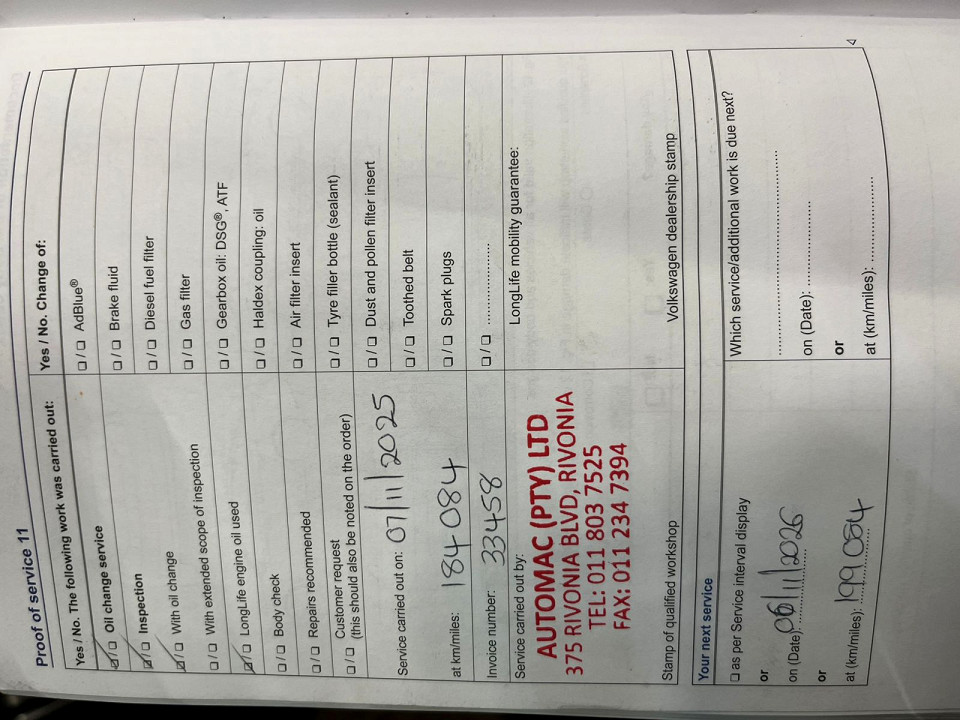 Proof of service 11
Yes / No. The following work was carried out:
☑/☐ Oil change service
☑/☐ Inspection
☑/☐ With oil change
☐/☐ With extended scope of inspection
☑/☐ LongLife engine oil used
☐/☐ Body check
☐/☐ Repairs recommended
☐/☐ Customer request
(this should also be noted on the order)
Service carried out on: 07/11/2025
at km/miles: 184 084
Invoice number: 33458
Service carried out by:
AUTOMAC (PTY) LTD
375 RIVONIA BLVD, RIVONIA
TEL: 011 803 7525
FAX: 011 234 7394
Stamp of qualified workshop
Yes / No. Change of:
☐/☐ AdBlue®
☐/☐ Brake fluid
☐/☐ Diesel fuel filter
☐/☐ Gas filter
☐/☐ Gearbox oil: DSG®, ATF
☐/☐ Haldex coupling: oil
☐/☐ Air filter insert
☐/☐ Tyre filler bottle (sealant)
☐/☐ Dust and pollen filter insert
☐/☐ Toothed belt
☐/☐ Spark plugs
☐/☐ ....................
LongLife mobility guarantee:
Volkswagen dealership stamp
Your next service
☐ as per Service interval display
or
on (Date): 06/11/2026
or
at (km/miles): 199 084
Which service/additional work is due next?
........................................
on (Date): ....................
or
at (km/miles): ....................
4